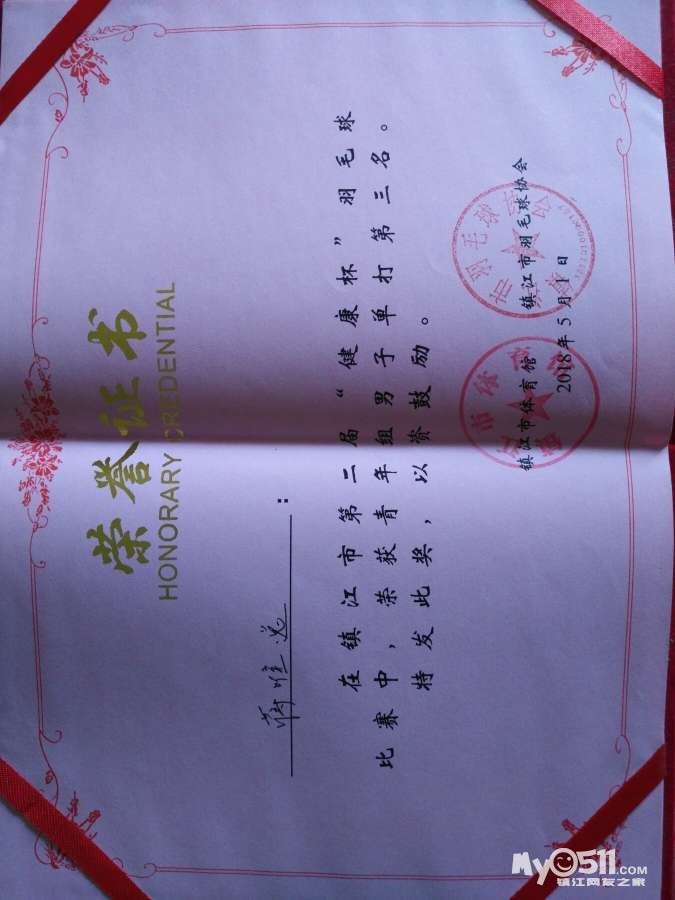 荣誉证书
HONORARY CREDENTIAL
：
在镇江市第二届“健康杯”羽毛球
比赛中，荣获青年组男子单打第三名。
特发此奖，以资鼓励。
镇江市体育馆 镇江市羽毛球协会
2018年5月1日
My0511.com
镇江网友之家